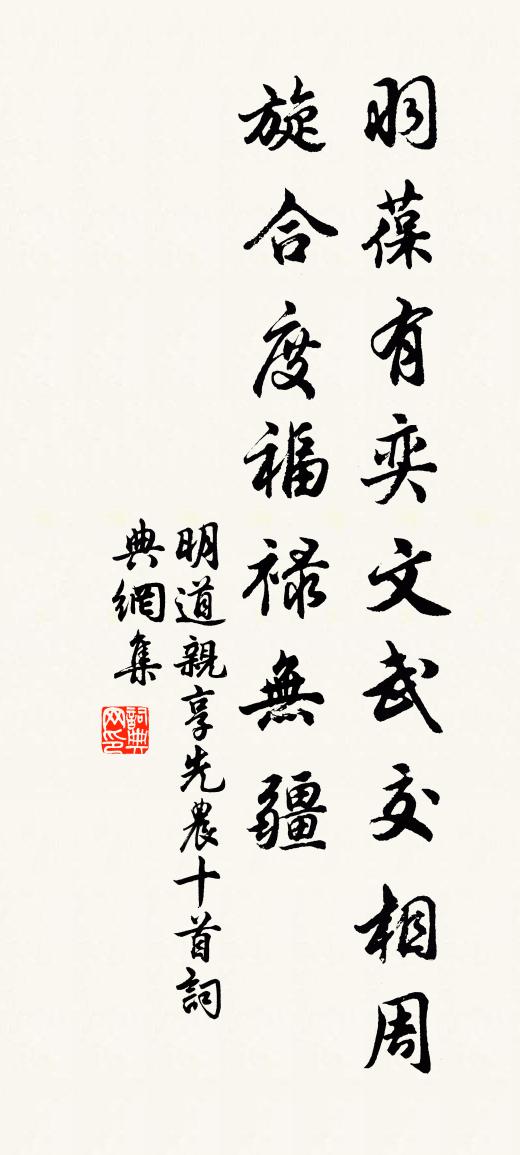 羽葆有奕文武交相周
旋合度福禄無疆
明道親享先農十首詞
典網集
詞典
网印